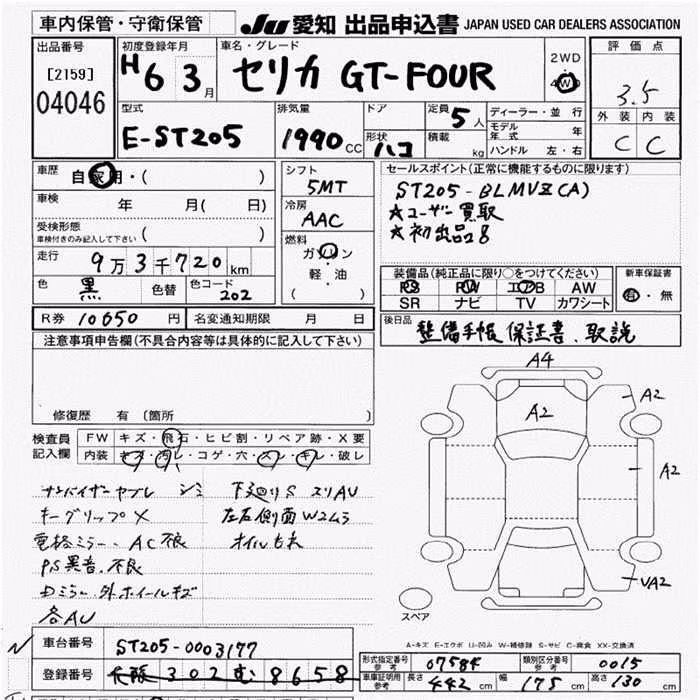 車内保管・守衛保管 JU 愛知 出品申込書 JAPAN USED CAR DEALERS ASSOCIATION
出品番号 初度登録年月 車名・グレード 評価点
[2159] H6 3月 セリカ GT-FOUR 2WD 4WD 3.5
04046 型式 排気量 ドア 定員 5人 ディーラー・並行 外装 内装
E-ST205 1990CC 形状 ハコ 積載 kg モデル年式 年 C C
ハンドル 左・右
車歴 自家用・( ) シフト セールスポイント(正常に機能するものに限ります)
5MT ST205-
車検 年 月( 日) 冷房 ★ユーザー買取
受検形態 AAC ★初出品
車検付きのみ記入して下さい ( ) 燃料
走行 9万3千720km ガソリン 装備品(純正品に限り○をつけてください) 新車保証書
色 黒 色替 色コード 202 軽・油 PS PW エアB AW 有・無
( ) SR ナビ TV カワシート
R券 10650円 名変通知期限 月 日 後日品 整備手帳 保証書、取説
注意事項申告欄(不具合内容等は具体的に記入して下さい)
修復歴 有(箇所 )
A4
A2
A2
A2
検査員 FW キズ・飛石・ヒビ割・リペア跡・X要
記入欄 内装 キズ・汚レ・コゲ・穴・スレ・キレ・破レ
サンバイザーヤブレ シミ 下廻りS スリAU
キーグリップX 左右側面W2ムラ
電格ミラー、AC不良 オイルもれ
PS異音、不良
Dミラー、外ホイールキズ
各AU
スペア
VA2
A-キズ E-エクボ U-凹み W-補修跡 S-サビ C-腐食 XX-交換済
車台番号 ST205-0003177
登録番号 302 8658
形式指定番号 参考 07584 類別区分番号 参考 0015
車庫証明用 参考 長さ 442cm 幅 175cm 高さ 130cm